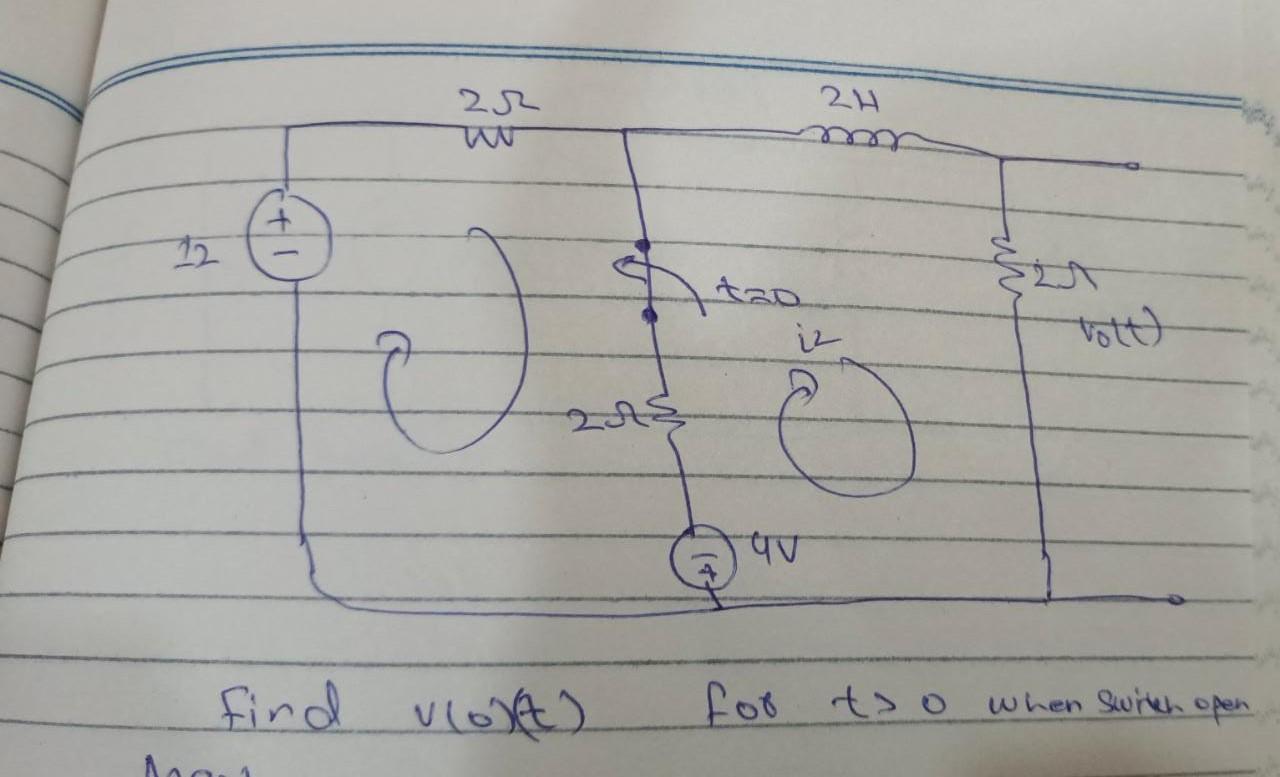 2Ω
2H
+
-
12
t=0
2Ω
i2
vo(t)
2Ω
4V
-
+
find v(o)(t) for t>0 when switch open